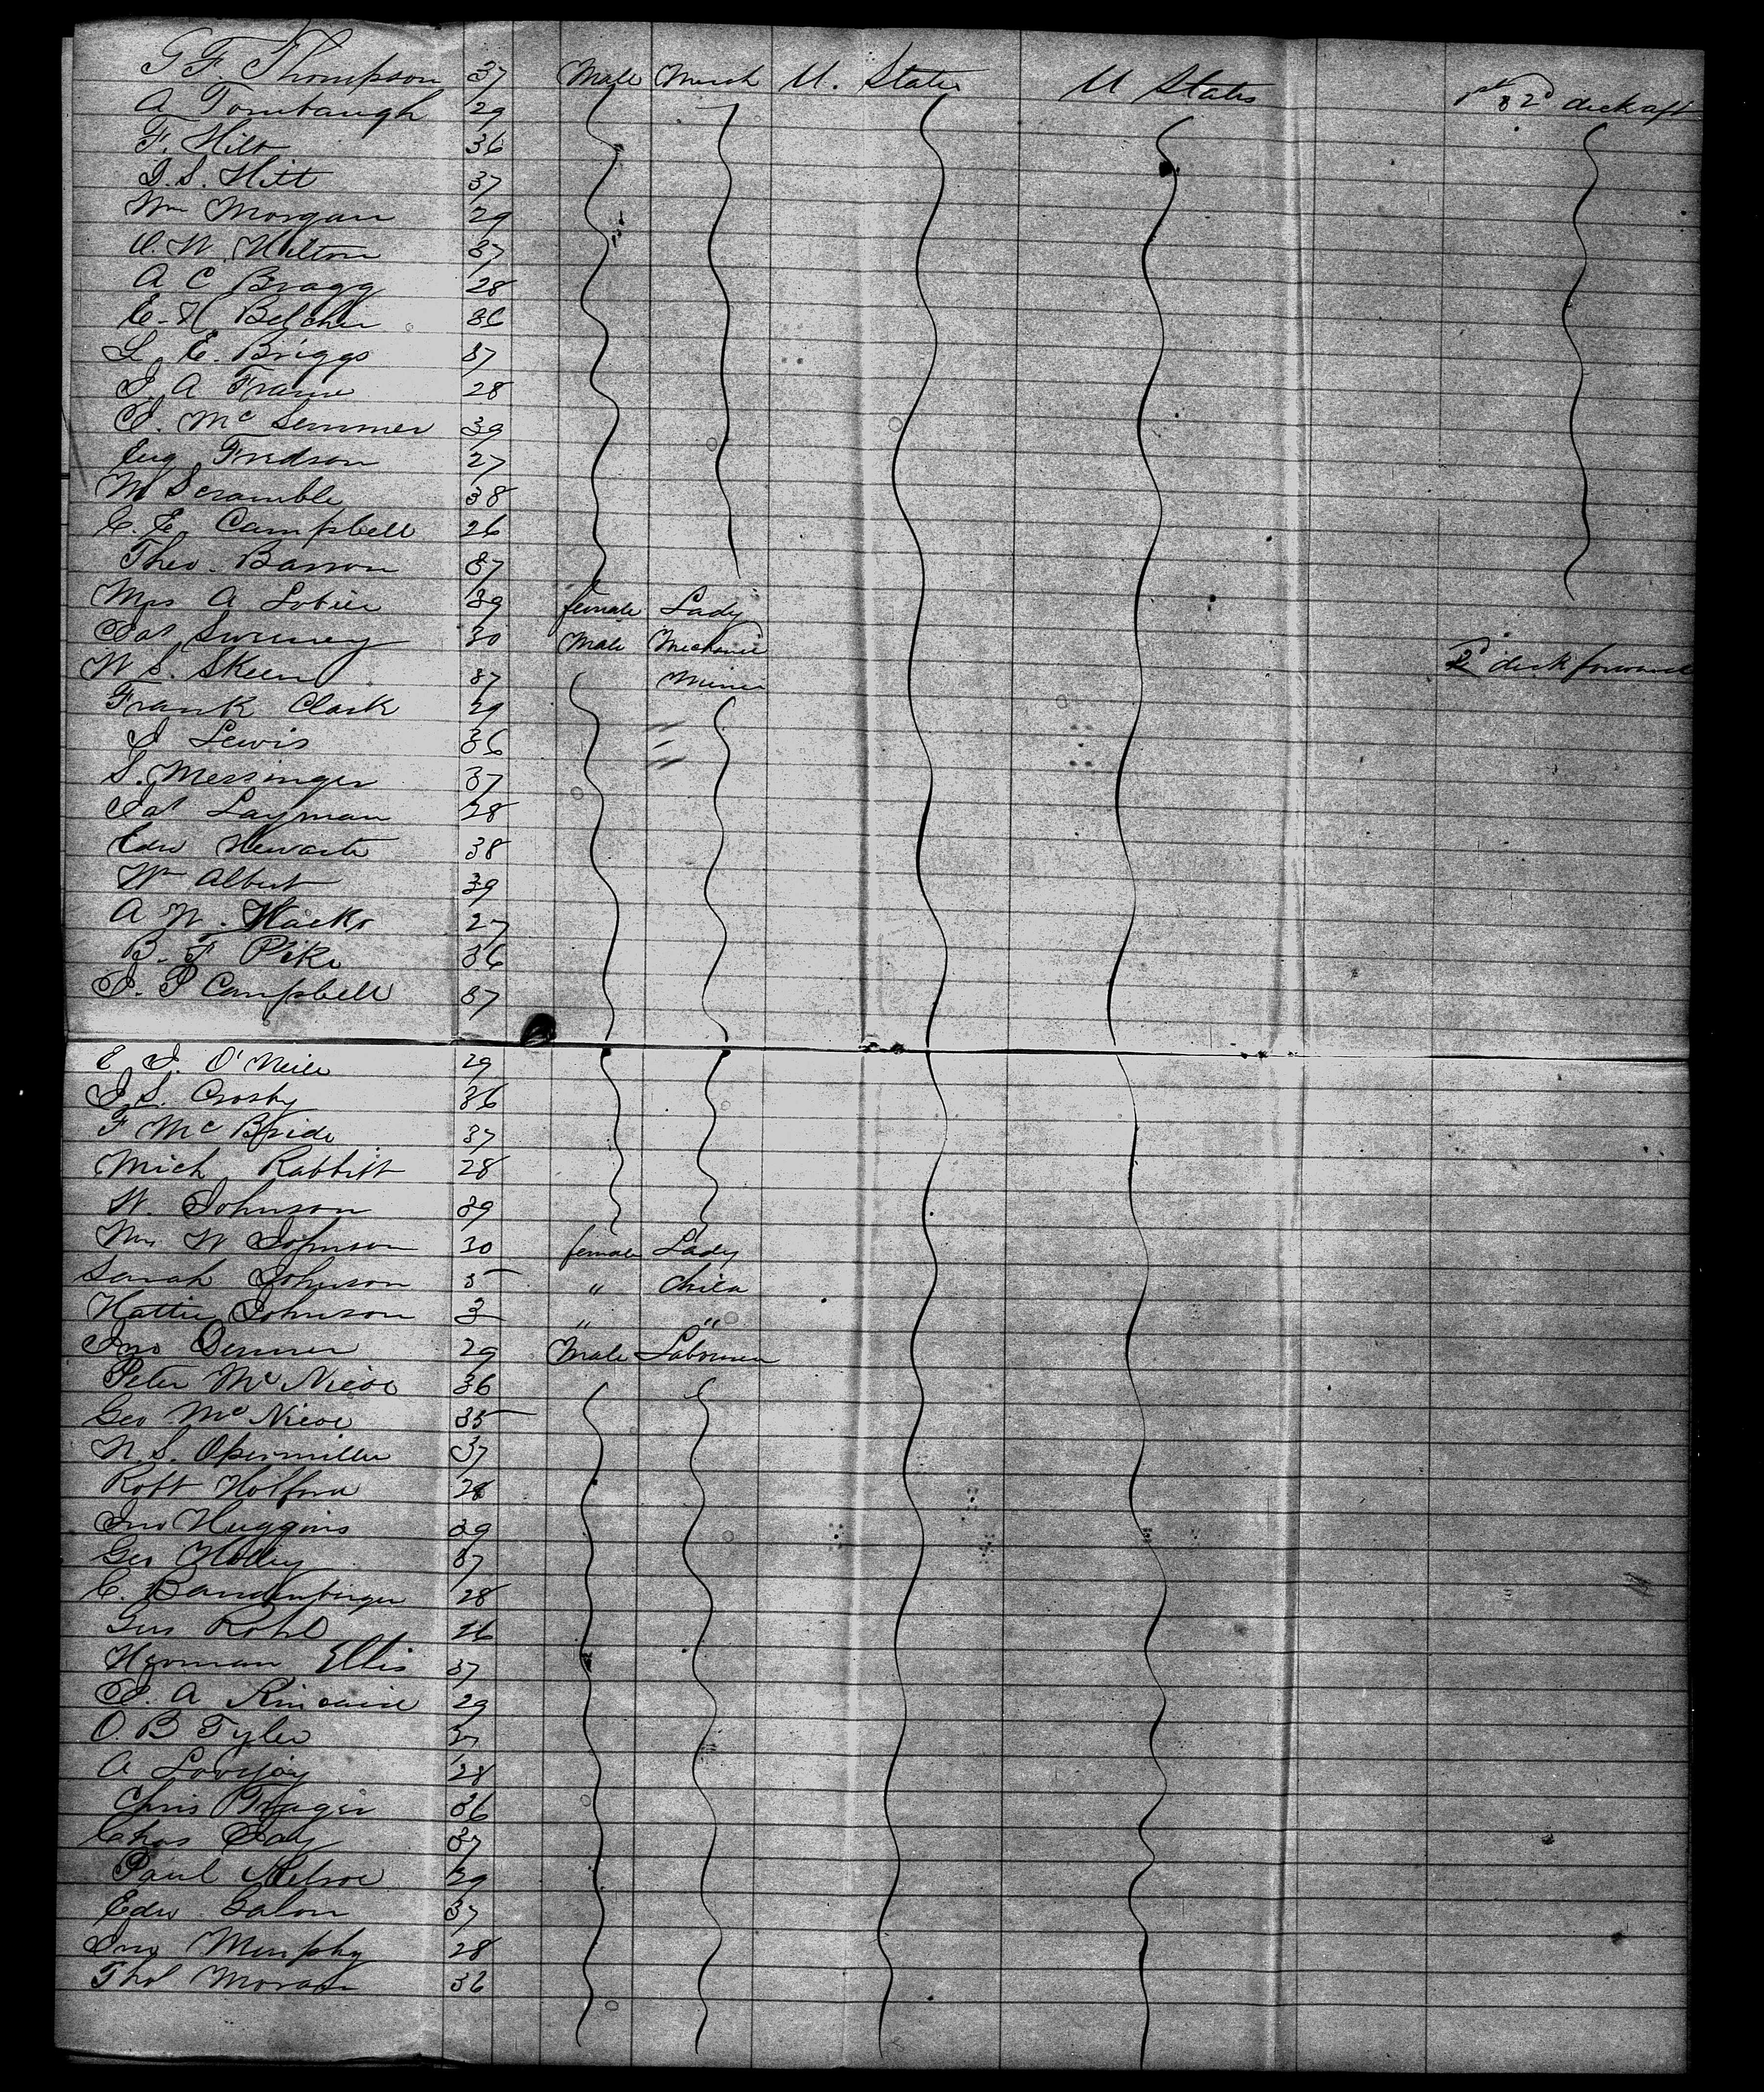 G. F. Thompson 37 Male Merch U. States U States 1st & 2d deck aft
A Tombaugh 29
F. Hilt 36
J. S. Hitt 37
Wm Morgan 29
O. W. Hilton 37
A C Bragg 28
E. H Belcher 36
L. E. Briggs 37
J. A Frame 28
J. Mc Lemmer 39
Eug Fridson 27
M Scramble 38
C. E. Campbell 26
Theo. Barron 37
Mrs A Lobier 39 female Lady
Pat Sweeney 30 Male Mechanic
W S. Skeen 37 Miner 2d deck forward
Frank Clark 29
J Lewis 36
S. Messinger 37
Pat Layman 28
Edw 38
Wm Albert 39
A W. Hacks 27
B. F Pike 36
J. P Campbell 37
E J. O'Neill 29
J. S. Crosby 36
F McBride 37
Mich Rabbitt 28
W. Johnson 39
Mrs W Johnson 30 female Lady
Sarah Johnson 5 " Child
Hattie Johnson 3 " "
Jno 29 Male Labourer
Peter McNicol 36
Geo McNicol 35
N. S. Opermiller 37
Robt Holford 28
Jno Huggins 39
Geo Holley 37
C. 28
Gus Rohl 26
Herman Ellis 37
J. A Kincaid 29
O. B Tyler 37
A Lovejoy 28
Chris Trager 36
Chas Day 37
Paul 29
Edw Galon 37
Jno Murphy 28
Thos Moran 36